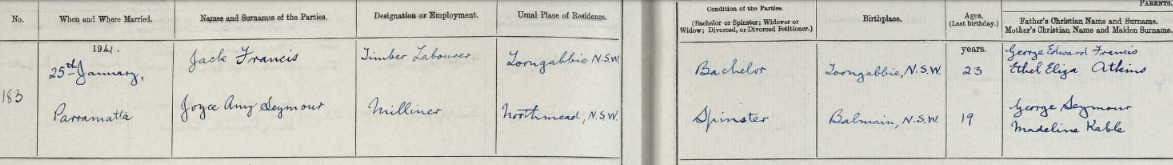 No.
When and Where Married.
Names and Surnames of the Parties.
Designation or Employment.
Usual Place of Residence.
Condition of the Parties
(Bachelor or Spinster; Widower or
Widow; Divorced, or Divorced Petitioner.)
Birthplace.
Ages.
(Last birthday.)
PARENTS.
Father's Christian Name and Surname.
Mother's Christian Name and Maiden Surname.
183
1941.
25th January,
Parramatta
Jack Francis
Timber Labourer
Toongabbie N.S.W.
Bachelor
Toongabbie, N.S.W.
years.
23
George Edward Francis
Ethel Eliza Atkins
Joyce Amy Seymour
Milliner
Northmead, N.S.W.
Spinster
Balmain, N.S.W.
19
George Seymour
Madeline Kable